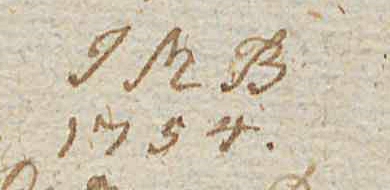 J M B
1754.